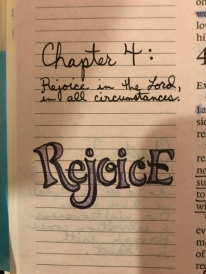 Chapter 4:
Rejoice in the Lord,
in all circumstances.
RejoicE